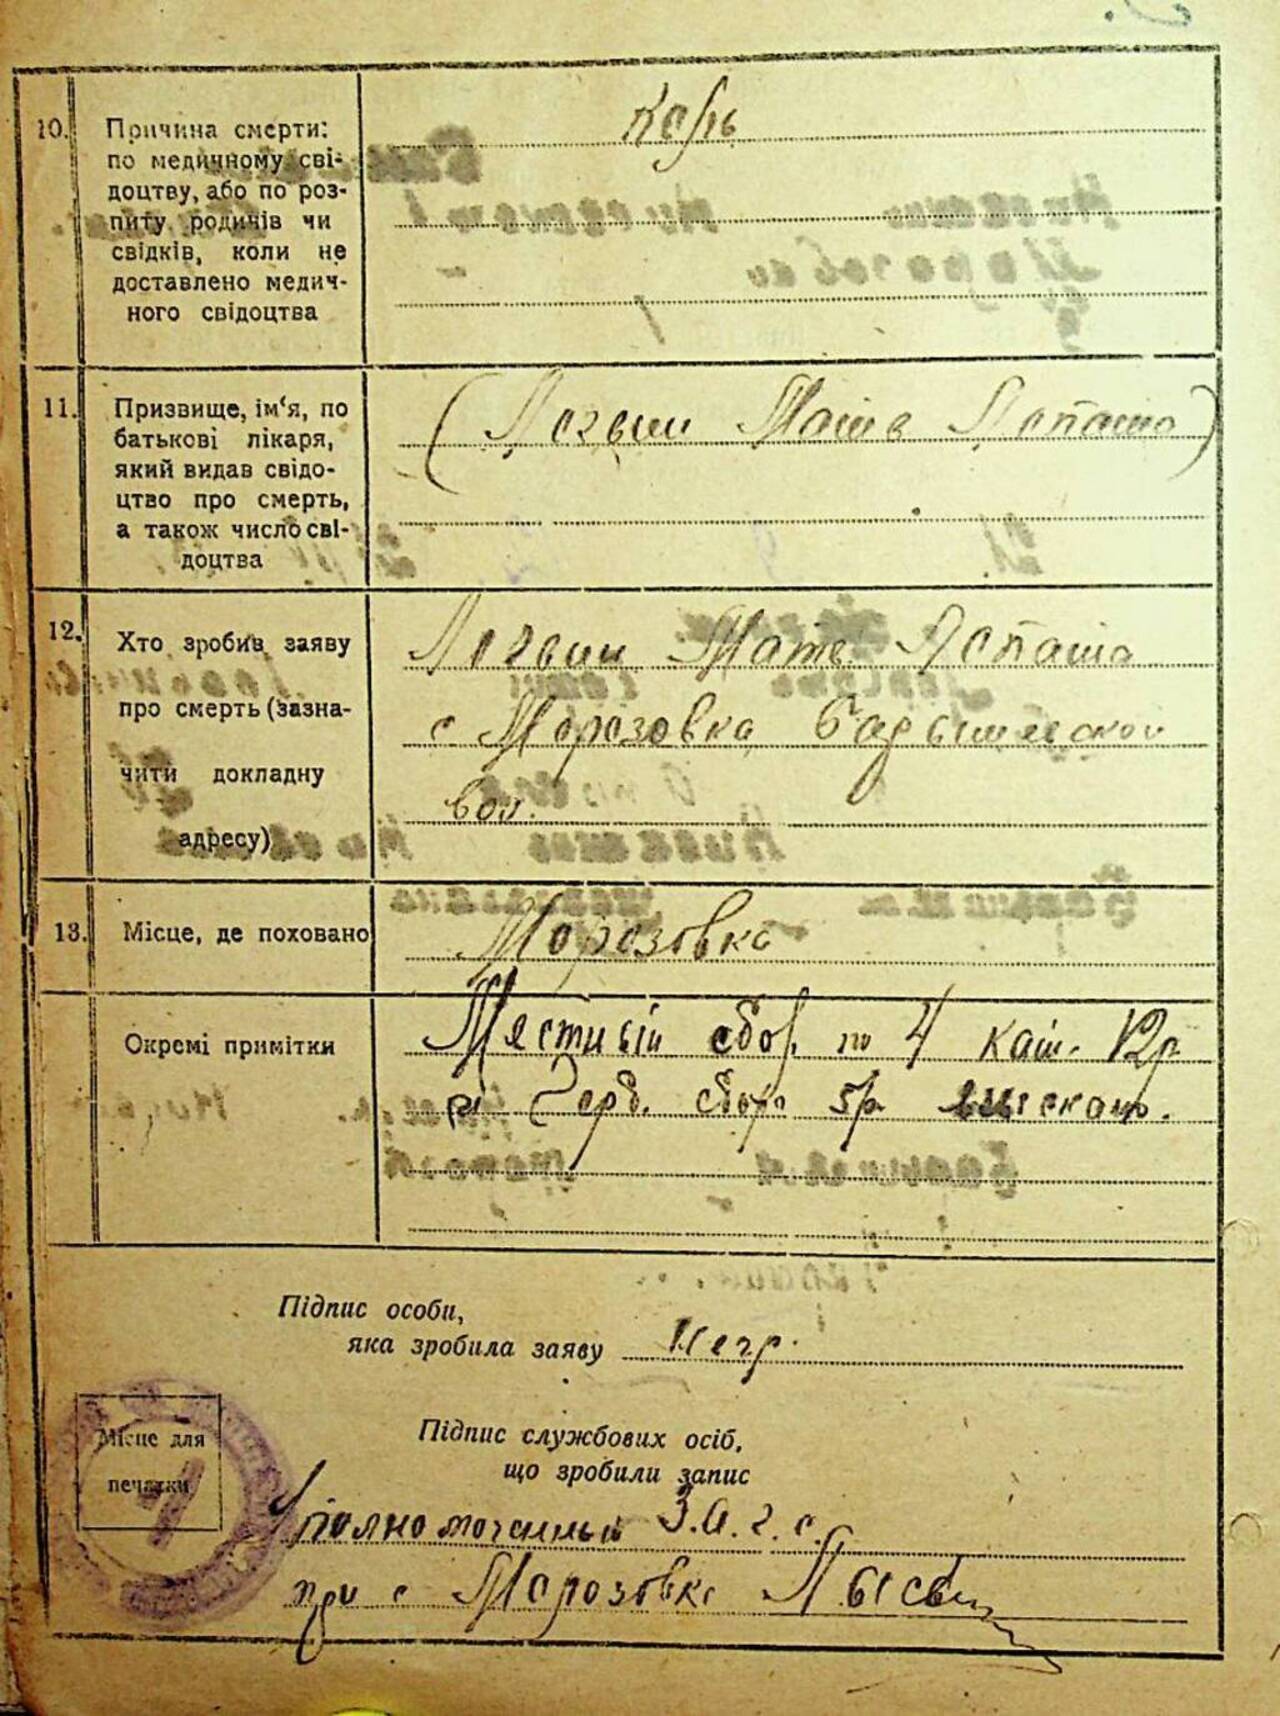 10.
Причина смерти:
по медичному сві-
доцтву, або по роз-
питу родичів чи
свідків, коли не
доставлено медич-
ного свідоцтва
Корь
11.
Призвище, ім‘я, по
батькові лікаря,
який видав свідо-
цтво про смерть,
а також число сві-
доцтва
12.
Хто зробив заяву
про смерть (зазна-
чити докладну
адресу)
с Морозовка
вол.
13.
Місце, де поховано
Морозовка
Окремі примітки
Местный сбор по 4 кат. 12р
и Герб. сбор 5р взыскано.
Підпис особи,
яка зробила заяву Негр.
Місце для
печатки
Підпис службових осіб,
що зробили запис
Уполномоченный З.А.г.с.
при с Морозовке